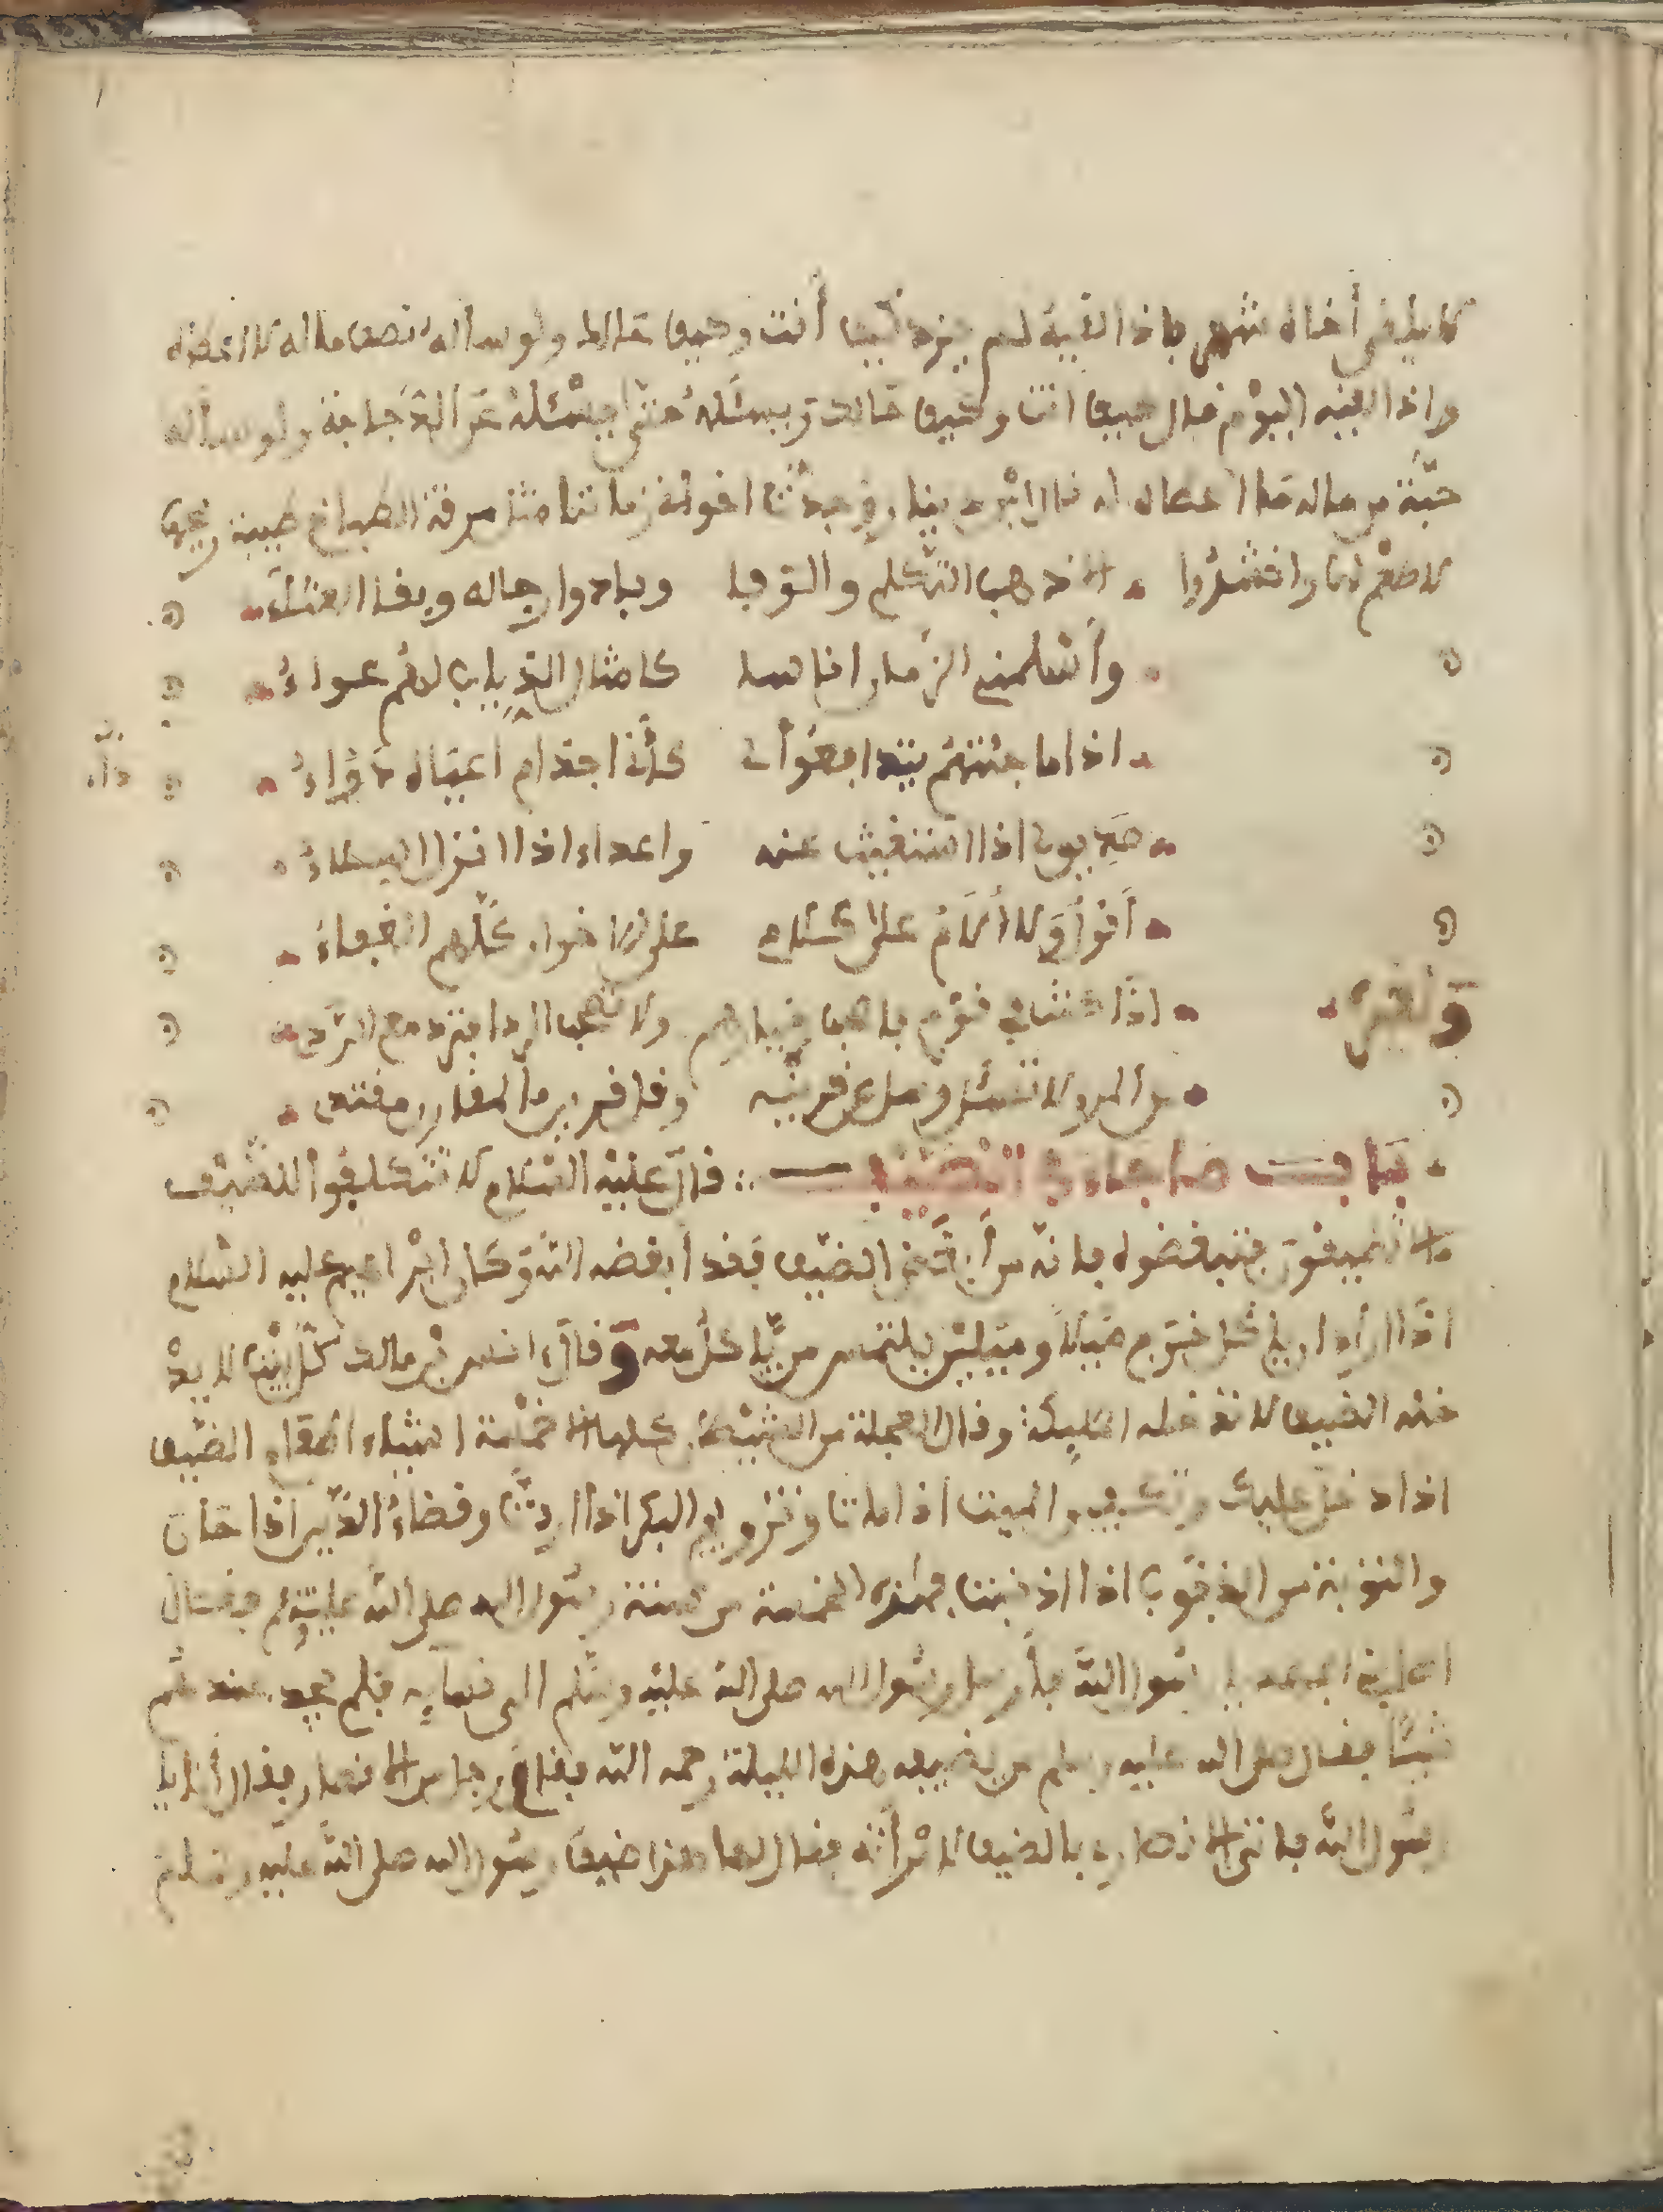 لا يلقى أخاه شهرا فاذا لقيه لم يزد كيف أنت وكيف حالك ولو سأله نصف ماله لاعطاه
واذا لقيه اليوم قال كيف انت وكيف حالك ويسئله حتى يسئله عن الدجاجة ولو سأله
حبة من ماله ما اعطاه له قال ابن دينار وجدنا اخوة زماننا مثل مرقة الطباخ طيبة ريحها
لا طعم لها وانشدوا الا ذهب التكلم والوفا وبادوا رجاله وبقا الغثاء
وأسلمني الزمان اناسا كامثال الذياب لهم عواء
اذا ما جئتهم يتدافعوا كأني اجذام اعياه دواء
صديون اذا استغنيت عنه واعداء اذا نزل البلاء
أقول ولا ألام على كلام على الاخوان كلهم العفاء
وأخرى اذا كنت في قوم فصاحب خيارهم ولا تصحب الردا فترد مع الردي
عن المرء لا تسئل وسل عن قرينه وكل قرين بالمقارن مقتدي
باب ما جاء في الضيف قال عليه السلام لا تتكلفوا للضيف
فتبغضوه فانه من أبغض الضيف فقد أبغضه الله وكان ابراهيم عليه السلام
اذا اراد ان ياكل خرج ميلا وميلين يلتمس من ياكل معه وقال انس بن مالك كل بيت لا يد
خله الضيف لا تدخله الملايكة وقال العجلة من الشيطان كلها الا خمسة اشياء اطعام الضيف
اذا دخل عليك والميت اذا مات وتزويج البكر اذا وقضاء الدين اذا حان
والتوبة من الذنوب اذا اذنبت فهذه الخمسة من سنة رسول الله صلى الله عليه وسلم
رسول الله فأرسل رسول الله صلى الله عليه وسلم الى نسايه فلم يجد عندهم
شيئا فقال صلى الله عليه وسلم من يضيفه هذه الليلة رحمه الله فقام رجل من الانصار فقال أنا يا
رسول الله فاتى الانصاري بالضيف لامرأته فقال لها هذا ضيف رسول الله صلى الله عليه وسلم